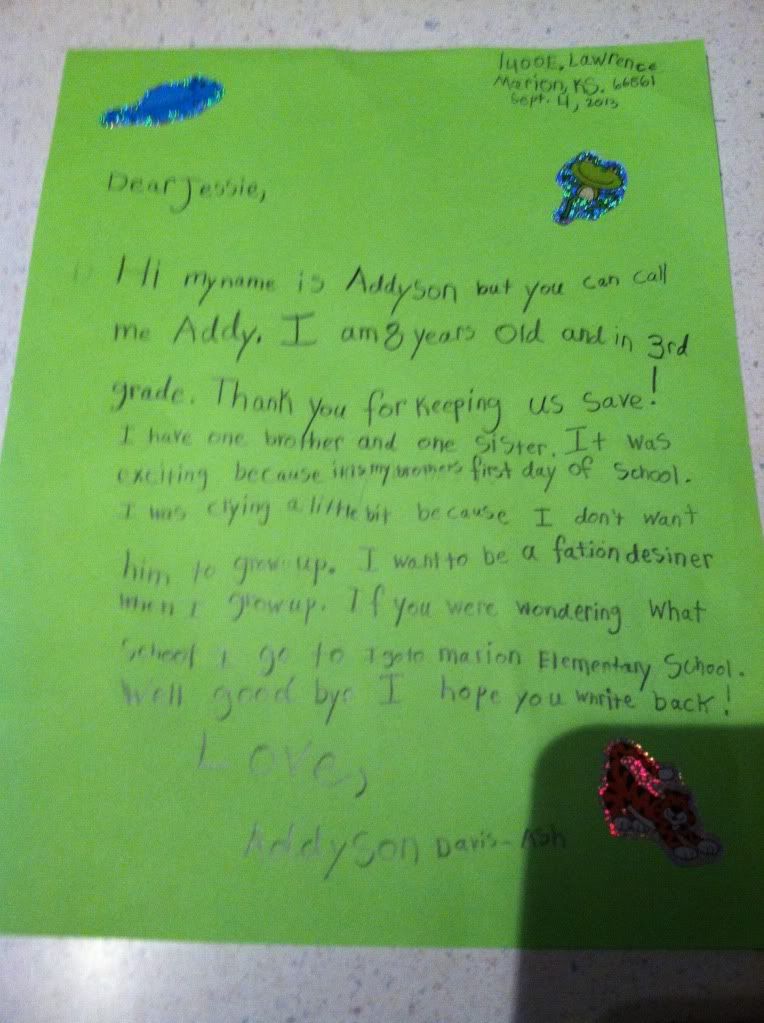 1400 E. Lawrence
Marion, KS. 66861
Sept. 4, 2013
Dear Jessie,
Hi my name is Addyson but you can call
me Addy. I am 8 years old and in 3rd
grade. Thank you for keeping us save!
I have one brother and one sister. It was
exciting because it is my brothers first day of school.
I was crying a little bit because I don't want
him to grow up. I want to be a fation desiner
when I grow up. If you were wondering what
school I go to I go to marion Elementary School.
Well good bye I hope you whrite back!
Love,
Addyson Davis-Ash